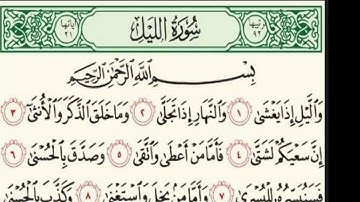 ترتيبها ٩٢ سُورَةُ اللَّيْلِ آياتها ٢١
بِسْمِ اللَّهِ الرَّحْمَٰنِ الرَّحِيمِ
وَالَّيْلِ إِذَا يَغْشَىٰ ١ وَالنَّهَارِ إِذَا تَجَلَّىٰ ٢ وَمَا خَلَقَ الذَّكَرَ وَالْأُنثَىٰ ٣
إِنَّ سَعْيَكُمْ لَشَتَّىٰ ٤ فَأَمَّا مَنْ أَعْطَىٰ وَاتَّقَىٰ ٥ وَصَدَّقَ بِالْحُسْنَىٰ ٦
فَسَنُيَسِّرُهُ لِلْيُسْرَىٰ ٧ وَأَمَّا مَنْ بَخِلَ وَاسْتَغْنَىٰ ٨ وَكَذَّبَ بِالْحُسْنَىٰ